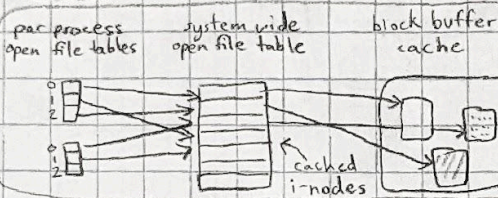 par process
open file tables
system wide
open file table
block buffer
cache
0
1
2
0
1
2
cached
i-nodes